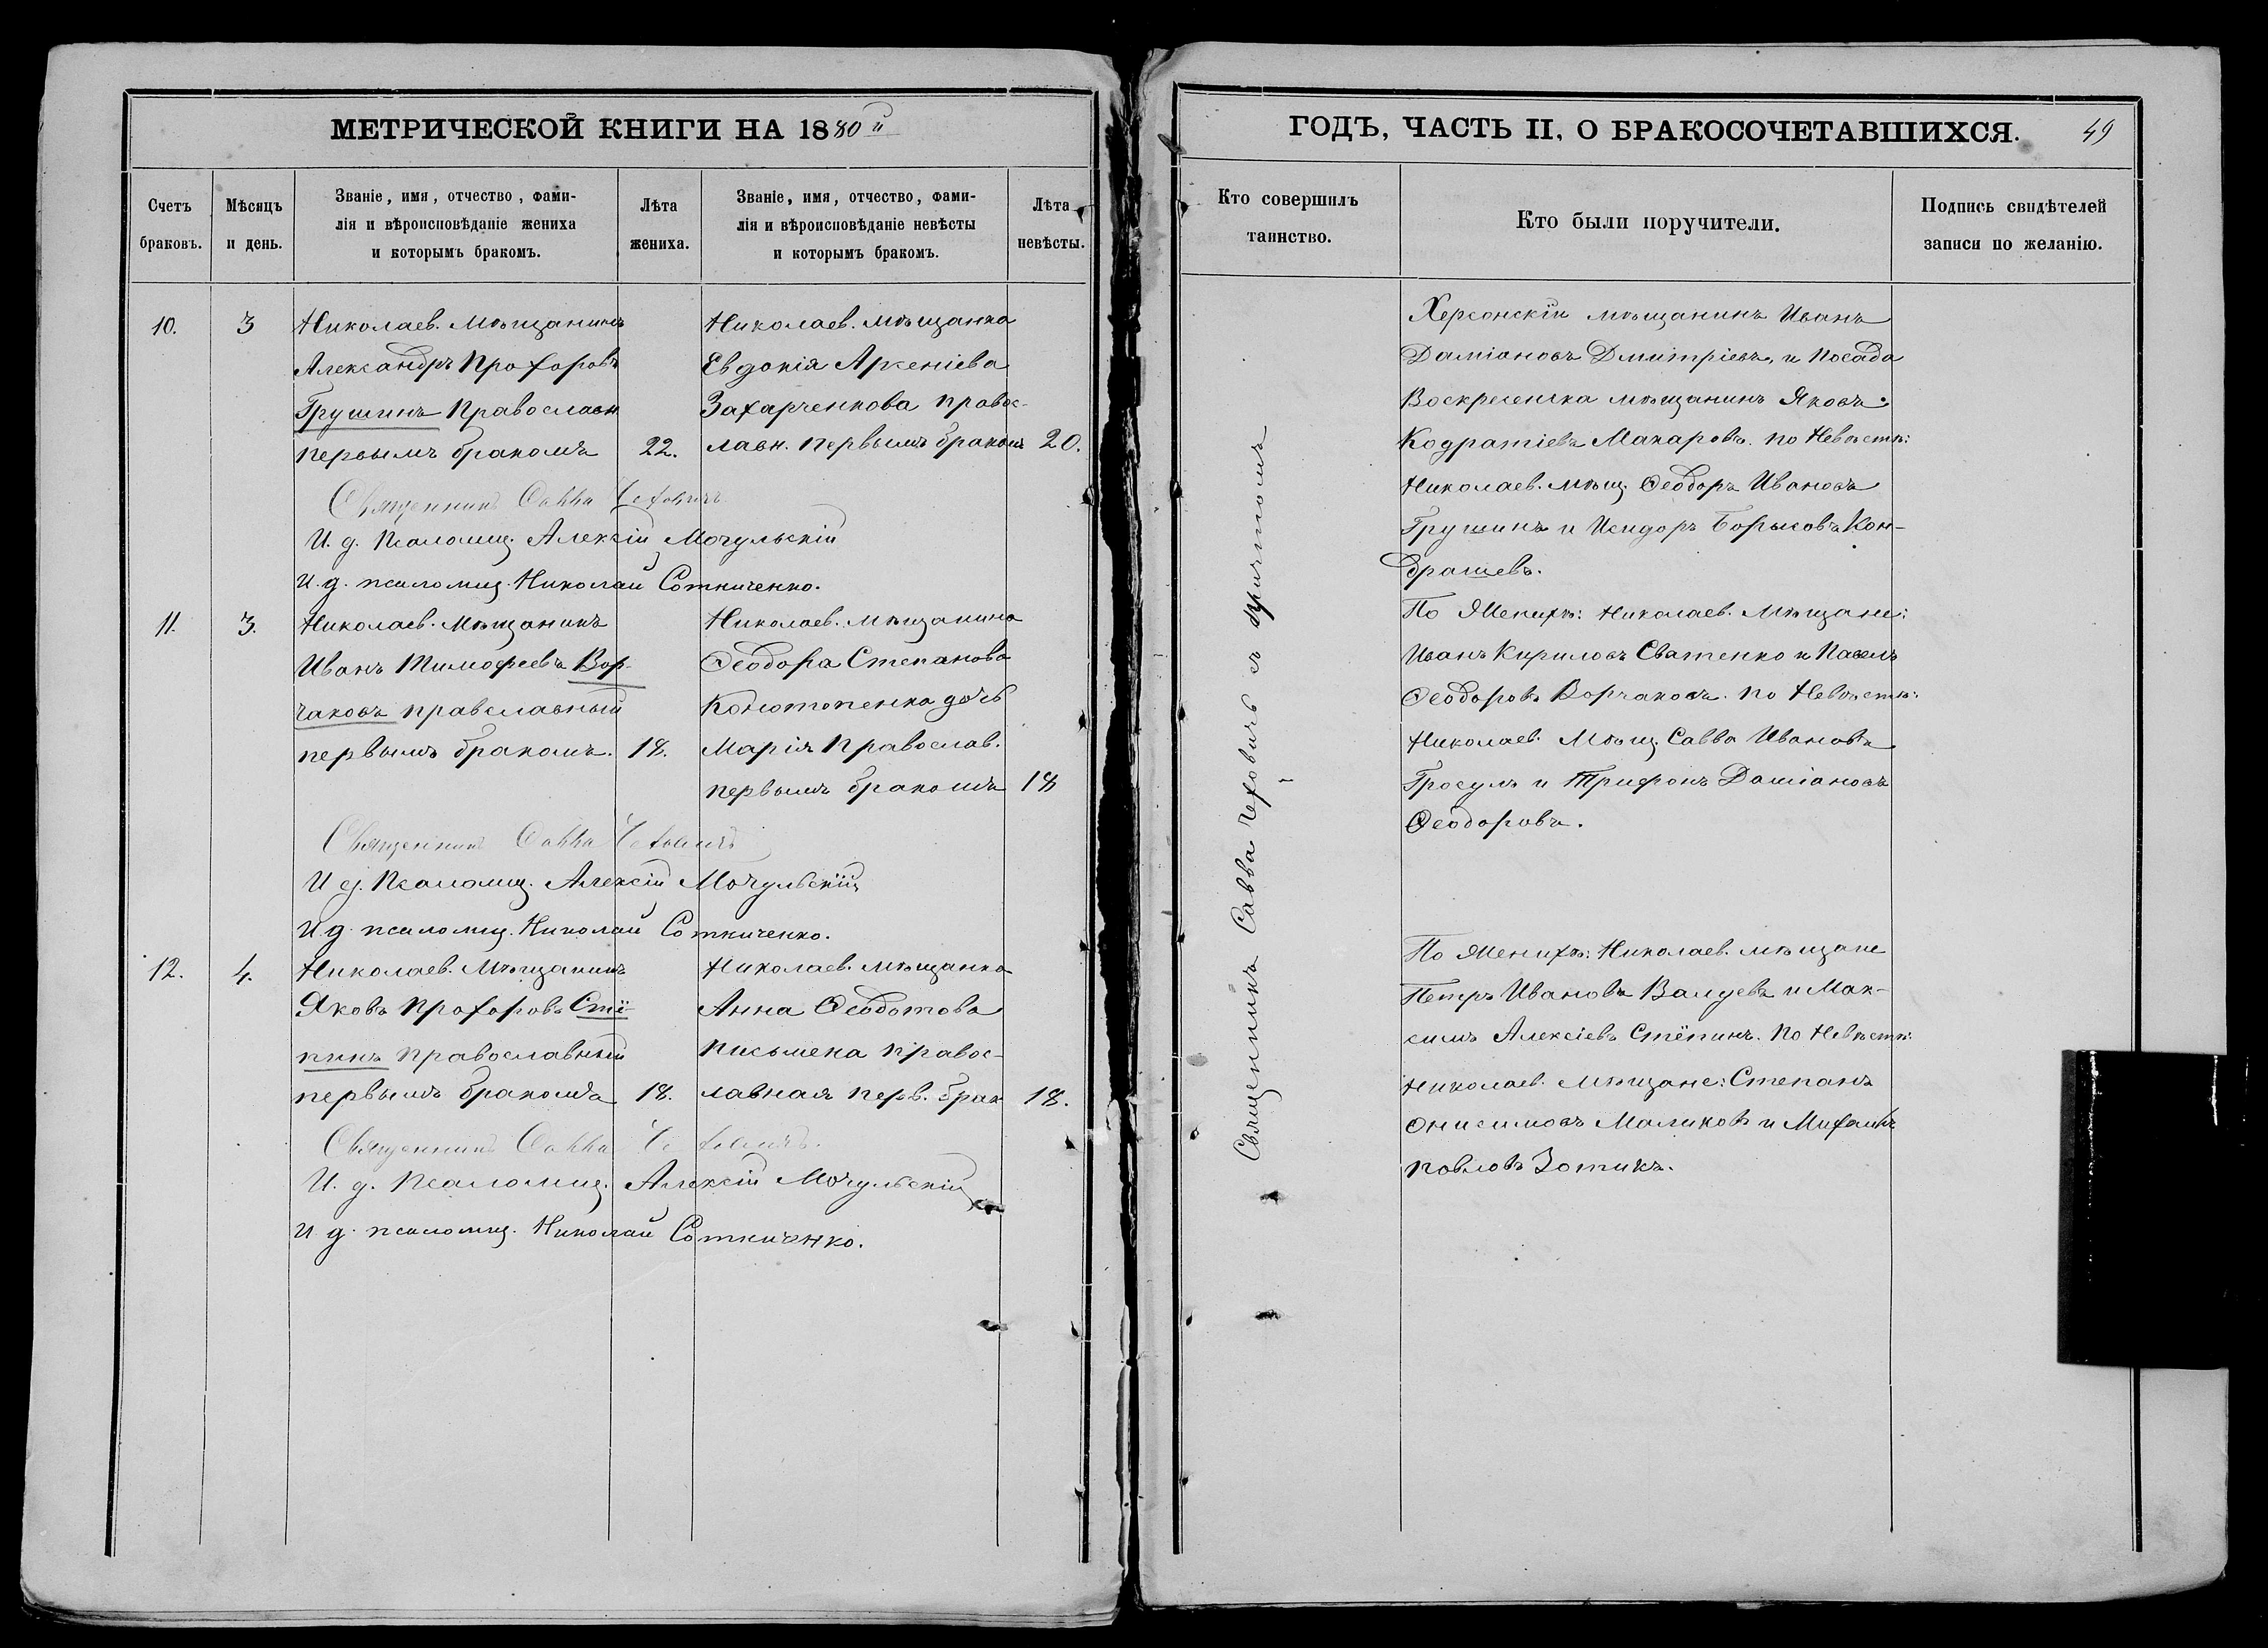 МЕТРИЧЕСКОЙ КНИГИ НА 1880й
Счетъ браковъ.
Мѣсяцъ и день.
Званіе, имя, отчество, фами-
лія и вѣроисповѣданіе жениха
и которымъ бракомъ.
Лѣта жениха.
Званіе, имя, отчество, фами-
лія и вѣроисповѣданіе невѣсты
и которымъ бракомъ.
Лѣта невѣсты.
10.
3
Николаев. Мѣщанинъ
Александръ Прохоровъ
Грушинъ Православн
первымъ бракомъ
22.
Николаев. мѣщанка
Евдокія Арсеніева
Захарченкова правос-
лавн. первымъ бракомъ
20.
Священникъ Савва Чеховичъ
И. д. Псаломщ. Алексій Мочульскій
И. д. псаломщ. Николай Сотниченко.
11.
3.
Николаев. Мѣщанинъ
Иванъ Тимофеевъ Вор-
чаковъ православный
первымъ бракомъ.
18.
Николаев. мѣщанина
Ѳеодора Степанова
Конотопенка дочь
Марія Православ.
первымъ бракомъ
18
Священникъ Савва Чеховичъ
И д. Псаломщ. Алексій Мочульскій
И д. псаломщ. Николай Сотниченко.
12.
4.
Николаев. Мѣщанинъ
Яковъ Прохоровъ Стё-
пинъ православный
первымъ бракомъ
18.
Николаев. мѣщанка
Анна Ѳеодотова
Письмена правос-
лавная перв. брак
18.
Священникъ Савва Чеховичъ.
И. д. Псаломщ. Алексій Мочульскій
И д. псаломщ. Николай Сотниченко.
ГОДЪ, ЧАСТЬ II, О БРАКОСОЧЕТАВШИХСЯ.
49
Кто совершилъ
таинство.
Кто были поручители.
Подпись свидѣтелей
записи по желанію.
Священникъ Савва Чеховичъ съ причтомъ
Херсонскій мѣщанинъ Иванъ
Даміановъ Дмитріевъ, и посада
Воскресенска мѣщанинъ Яковъ
Кодратіевъ Макаровъ. по Невѣстѣ:
Николаев. мѣщ. Ѳеодоръ Ивановъ
Грушинъ и Исидоръ Борисовъ Кон-
драшевъ.
По Женихѣ: Николаев. Мѣщане:
Иванъ Кириловъ Сватенко и Павелъ
Ѳеодоровъ Ворчаковъ. по Невѣстѣ:
Николаев. Мѣщ. Савва Ивановъ
Гросулъ и Трифонъ Даміановъ
Ѳеодоровъ.
По Женихѣ: Николаев. мѣщане
Петръ Ивановъ Валуевъ и Мак-
симъ Алексіевъ Стёпинъ. По Невѣстѣ:
Николаев. Мѣщане: Степанъ
Онисимовъ Маликовъ и Михаилъ
Павловъ Зотикъ.